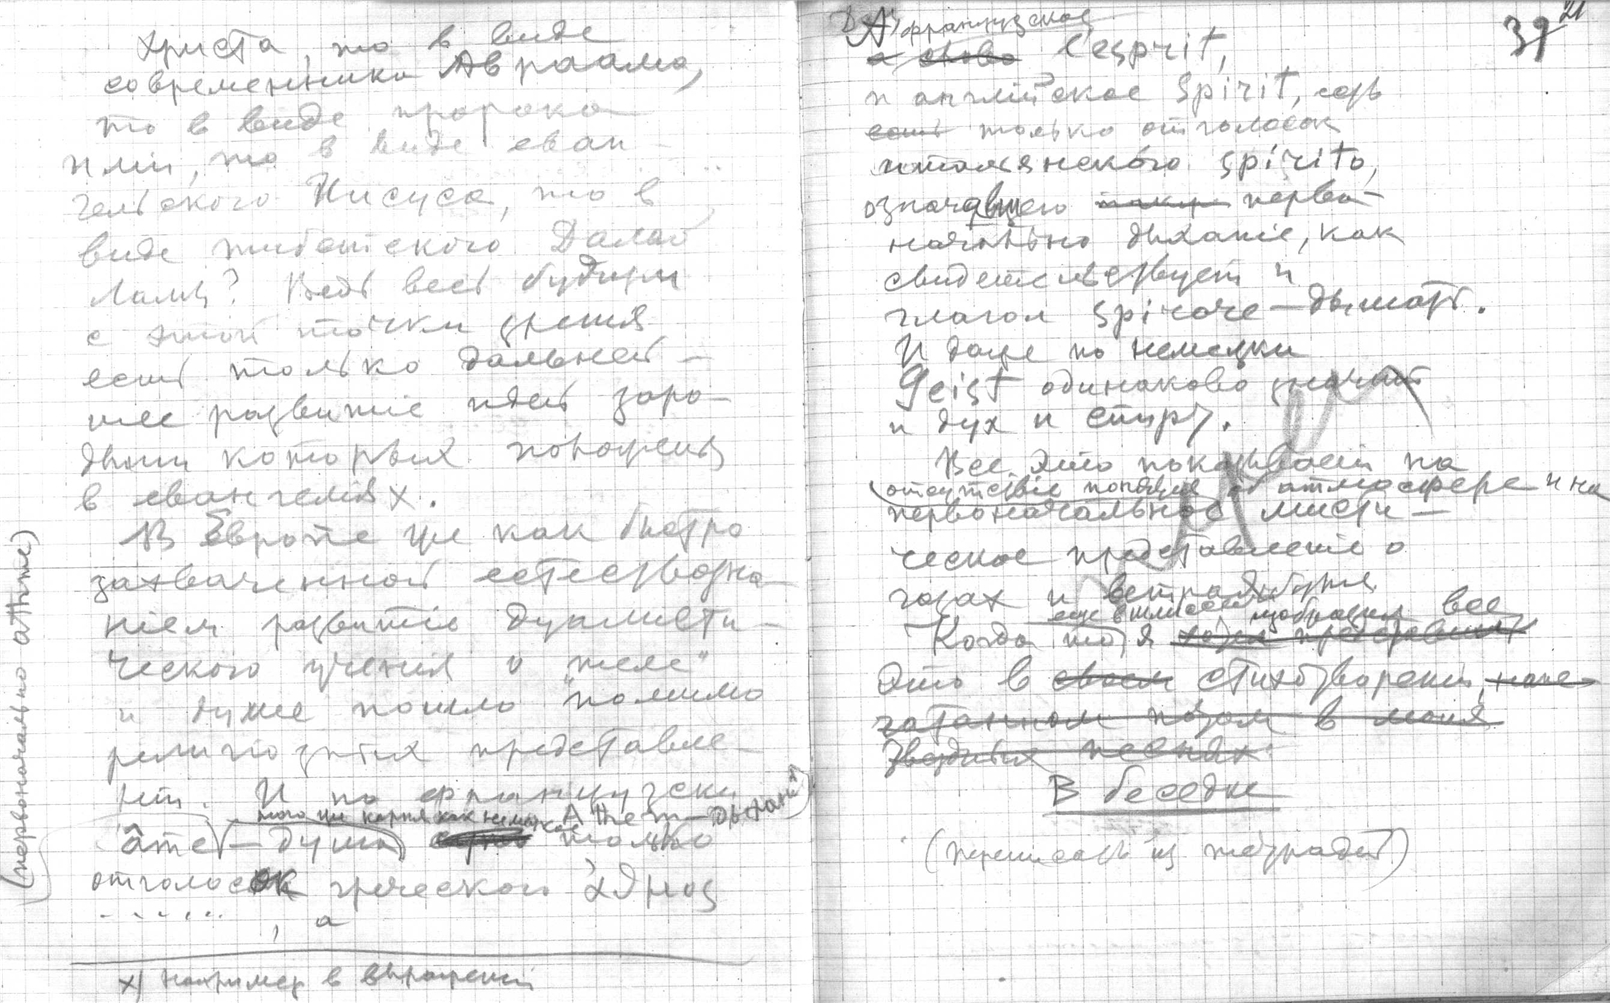 Христа, то в виде
современника Авраама,
то в виде пророка
Или, то в виде еван-
гельского Иисуса, то в
виде тибетского Далай
Ламы? Ведь весь будизм
с этой точки зрения
есть только дальней-
шее развитие идей заро-
дыши которых положены
в евангелиях.
В Европе же как быстро
захваченной естествозна-
нием развитие дуалисти-
ческого учения о "теле"
и душе пошло помимо
религиозных представле-
ний. И по французски
того же корня как немецкое Athem — дыхание)
âme — душа только
отголосок греческого
, а
х) Например в выражении
(первоначально athme)
39 21
А французское
а слово l'esprit,
и английское Spirit, ведь
есть только отголосок
итальянского spirito,
означавшего перво-
начально дыхание, как
свидетельствует и
глагол spirare — дышать.
И даже по немецки
Geist одинаково значит
и дух и спирт.
Все это показывает на
(отсутствие понятия об атмосфере и на
первоначальное мисти-
ческое представление о
газах и ветрах и буре
Когда то я изобразил все
это в своем стихотворении, напе-
чатанном в моих
Звездных песнях.
В беседке
(переписать из тетрадей)